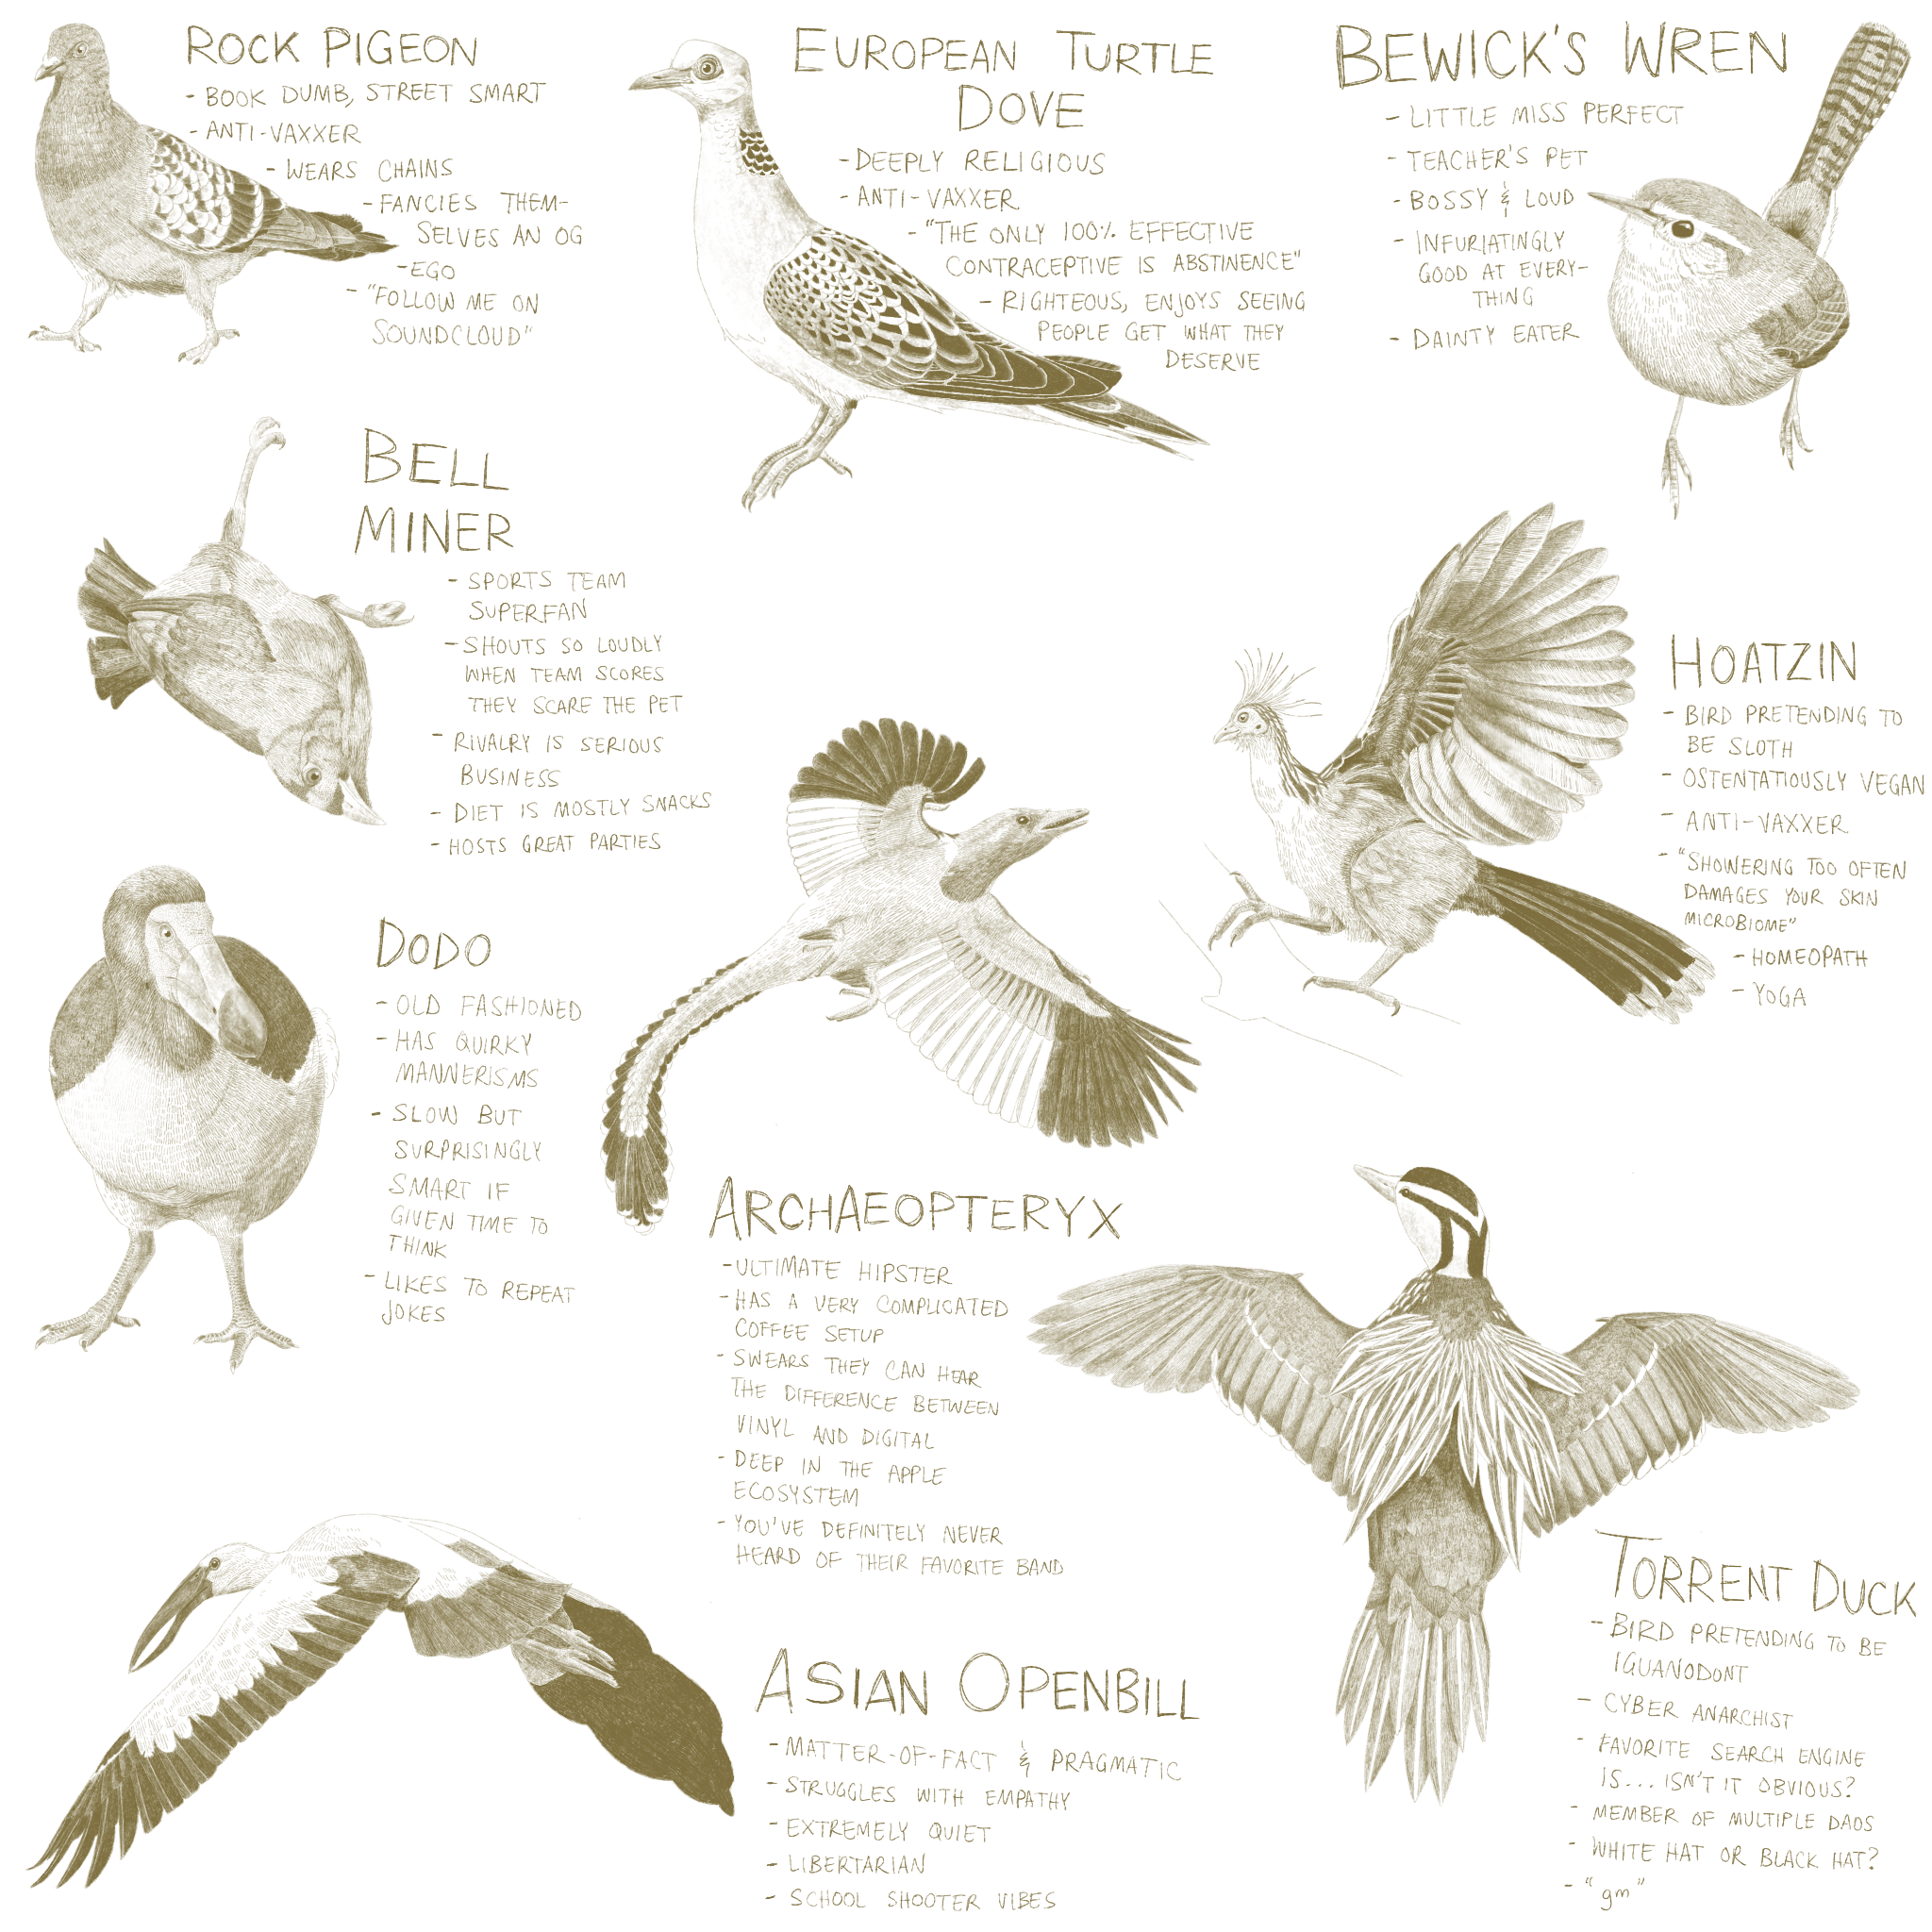 ROCK PIGEON
- BOOK DUMB, STREET SMART
- ANTI-VAXXER
- WEARS CHAINS
- FANCIES THEM-
SELVES AN OG
- EGO
- "FOLLOW ME ON
SOUNDCLOUD"
EUROPEAN TURTLE
DOVE
- DEEPLY RELIGIOUS
- ANTI-VAXXER
- "THE ONLY 100% EFFECTIVE
CONTRACEPTIVE IS ABSTINENCE"
- RIGHTEOUS, ENJOYS SEEING
PEOPLE GET WHAT THEY
DESERVE
BEWICK'S WREN
- LITTLE MISS PERFECT
- TEACHER'S PET
- BOSSY & LOUD
- INFURIATINGLY
GOOD AT EVERY-
THING
- DAINTY EATER
BELL
MINER
- SPORTS TEAM
SUPERFAN
- SHOUTS SO LOUDLY
WHEN TEAM SCORES
THEY SCARE THE PET
- RIVALRY IS SERIOUS
BUSINESS
- DIET IS MOSTLY SNACKS
- HOSTS GREAT PARTIES
HOATZIN
- BIRD PRETENDING TO
BE SLOTH
- OSTENTATIOUSLY VEGAN
- ANTI-VAXXER
- "SHOWERING TOO OFTEN
DAMAGES YOUR SKIN
MICROBIOME"
- HOMEOPATH
- YOGA
DODO
- OLD FASHIONED
- HAS QUIRKY
MANNERISMS
- SLOW BUT
SURPRISINGLY
SMART IF
GIVEN TIME TO
THINK
- LIKES TO REPEAT
JOKES
ARCHAEOPTERYX
- ULTIMATE HIPSTER
- HAS A VERY COMPLICATED
COFFEE SETUP
- SWEARS THEY CAN HEAR
THE DIFFERENCE BETWEEN
VINYL AND DIGITAL
- DEEP IN THE APPLE
ECOSYSTEM
- YOU'VE DEFINITELY NEVER
HEARD OF THEIR FAVORITE BAND
TORRENT DUCK
- BIRD PRETENDING TO BE
IGUANODONT
- CYBER ANARCHIST
- FAVORITE SEARCH ENGINE
IS... ISN'T IT OBVIOUS?
- MEMBER OF MULTIPLE DAOS
- WHITE HAT OR BLACK HAT?
- "gm"
ASIAN OPENBILL
- MATTER-OF-FACT & PRAGMATIC
- STRUGGLES WITH EMPATHY
- EXTREMELY QUIET
- LIBERTARIAN
- SCHOOL SHOOTER VIBES